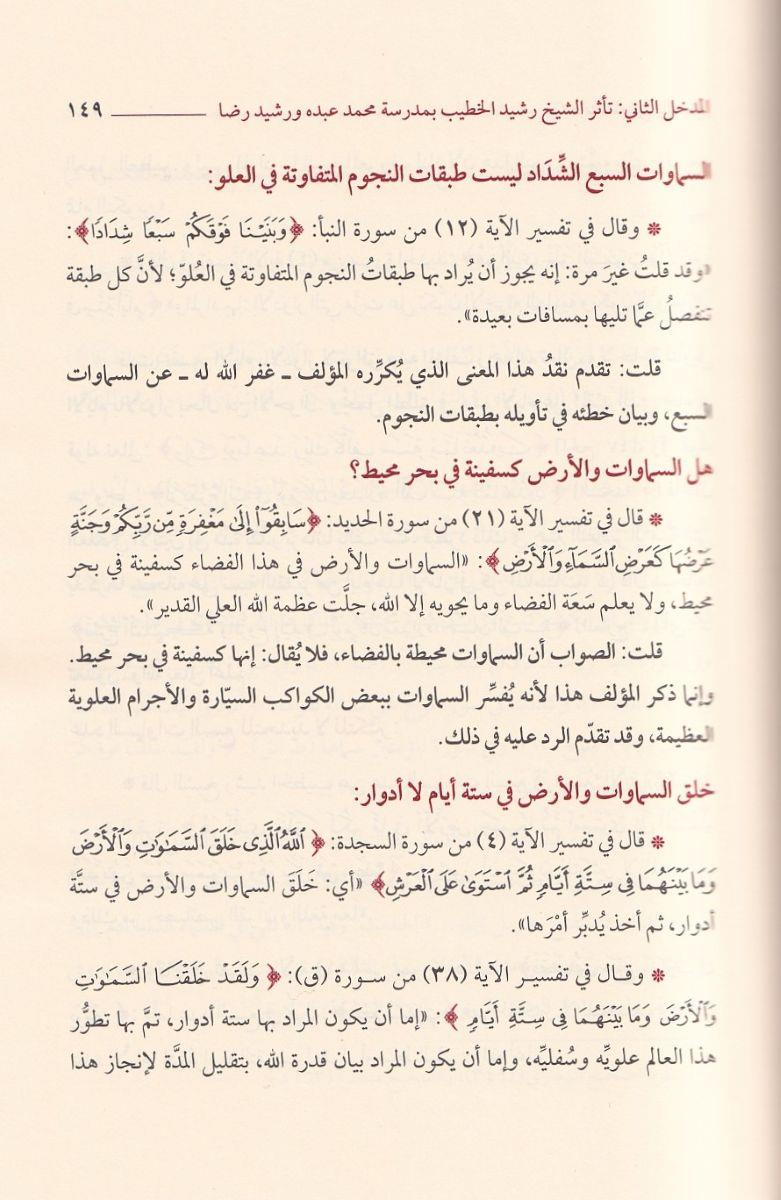 المدخل الثاني: تأثر الشيخ رشيد الخطيب بمدرسة محمد عبده ورشيد رضا ــــــــــ ١٤٩
السماوات السبع الشِّدَاد ليست طبقات النجوم المتفاوتة في العلو:
* وقال في تفسير الآية (١٢) من سورة النبأ: ﴿وَبَنَيْنَا فَوْقَكُمْ سَبْعًا شِدَادًا﴾:
«وقد قلتُ غيرَ مرة: إنه يجوز أن يُراد بها طبقاتُ النجوم المتفاوتة في العُلوّ؛ لأنَّ كل طبقة
تنفصلُ عمَّا تليها بمسافات بعيدة».
قلت: تقدم نقدُ هذا المعنى الذي يُكرِّره المؤلف ـ غفر الله له ـ عن السماوات
السبع، وبيان خطئه في تأويله بطبقات النجوم.
هل السماوات والأرض كسفينة في بحر محيط؟
* قال في تفسير الآية (٢١) من سورة الحديد: ﴿سَابِقُوٓاْ إِلَىٰ مَغْفِرَةٍ مِّن رَّبِّكُمْ وَجَنَّةٍ
عَرْضُهَا كَعَرْضِ ٱلسَّمَآءِ وَٱلْأَرْضِ﴾: «السماوات والأرض في هذا الفضاء كسفينة في بحر
محيط، ولا يعلم سَعَة الفضاء وما يحويه إلا الله، جلَّت عظمة الله العلي القدير».
قلت: الصواب أن السماوات محيطة بالفضاء، فلا يُقال: إنها كسفينة في بحر محيط.
وإنما ذكر المؤلف هذا لأنه يُفسِّر السماوات ببعض الكواكب السيّارة والأجرام العلوية
العظيمة، وقد تقدّم الرد عليه في ذلك.
خلق السماوات والأرض في ستة أيام لا أدوار:
* قال في تفسير الآية (٤) من سورة السجدة: ﴿ٱللَّهُ ٱلَّذِى خَلَقَ ٱلسَّمَٰوَٰتِ وَٱلْأَرْضَ
وَمَا بَيْنَهُمَا فِى سِتَّةِ أَيَّامٍ ثُمَّ ٱسْتَوَىٰ عَلَى ٱلْعَرْشِ﴾ «أي: خَلَقَ السماوات والأرض في ستَّة
أدوار، ثم أخذ يُدبِّر أمْرَها».
* وقال في تفسير الآية (٣٨) من سورة (ق): ﴿وَلَقَدْ خَلَقْنَا ٱلسَّمَٰوَٰتِ
وَٱلْأَرْضَ وَمَا بَيْنَهُمَا فِى سِتَّةِ أَيَّامٍ﴾: «إما أن يكون المراد بها ستة أدوار، تمَّ بها تطوُّر
هذا العالم علويِّه وسُفليِّه، وإما أن يكون المراد بيان قدرة الله، بتقليل المدَّة لإنجاز هذا